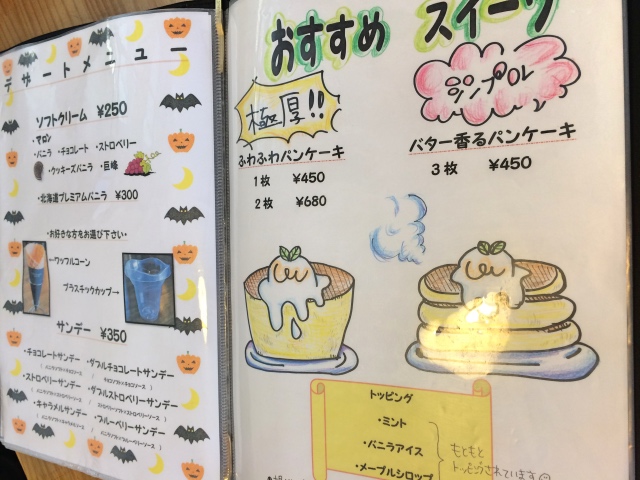 デザートメニュー
ソフトクリーム ¥250
・マロン
・バニラ ・チョコレート ・ストロベリー
・クッキーズバニラ ・巨峰
・北海道プレミアムバニラ ¥300
・お好きな方をお選び下さい・
←ワッフルコーン
プラスチックカップ→
サンデー ¥350
・チョコレートサンデー ・ダブルチョコレートサンデー
・ストロベリーサンデー ・ダブルストロベリーサンデー
・キャラメルサンデー ・ブルーベリーサンデー
おすすめ スイーツ
極厚!!
ふわふわパンケーキ
1枚 ¥450
2枚 ¥680
シンプル
バター香るパンケーキ
3枚 ¥450
トッピング
・ミント
・バニラアイス
・メープルシロップ
もともと
トッピングされています